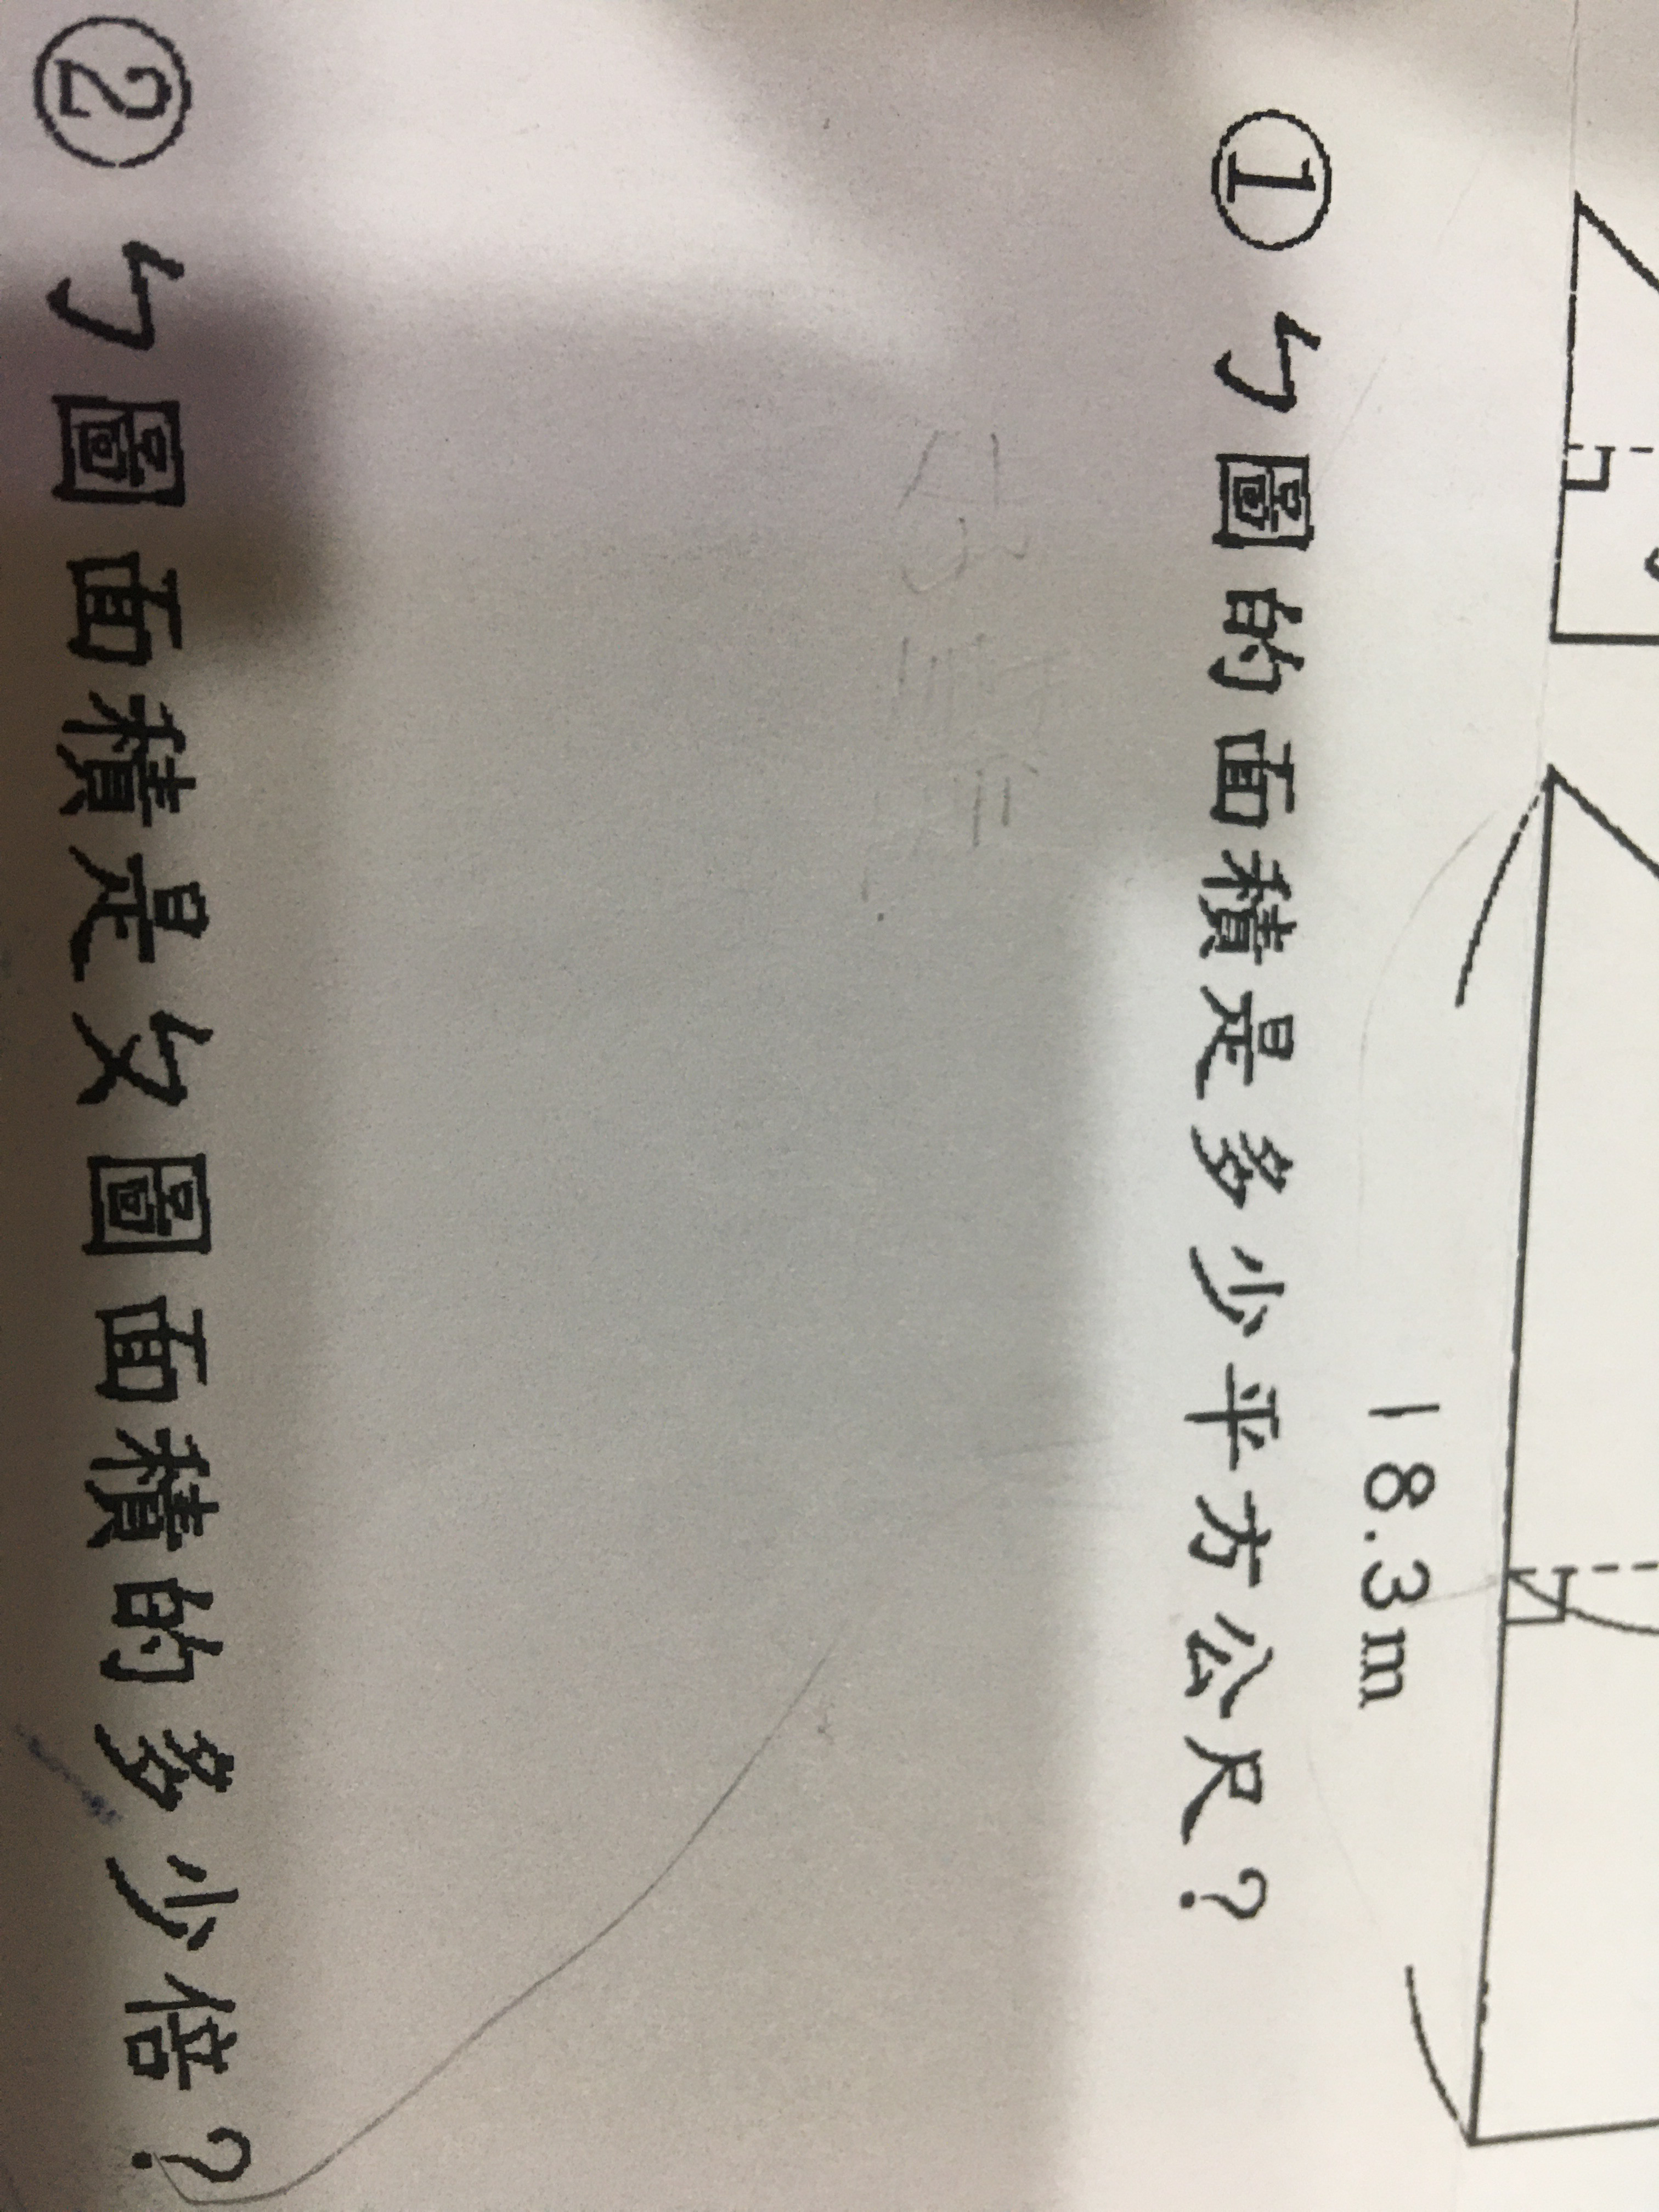 18.3m
① ㄅ圖的面積是多少平方公尺？
② ㄅ圖面積是ㄆ圖面積的多少倍？